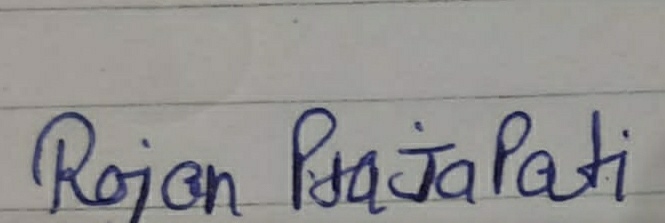 Rojan PrajaPati